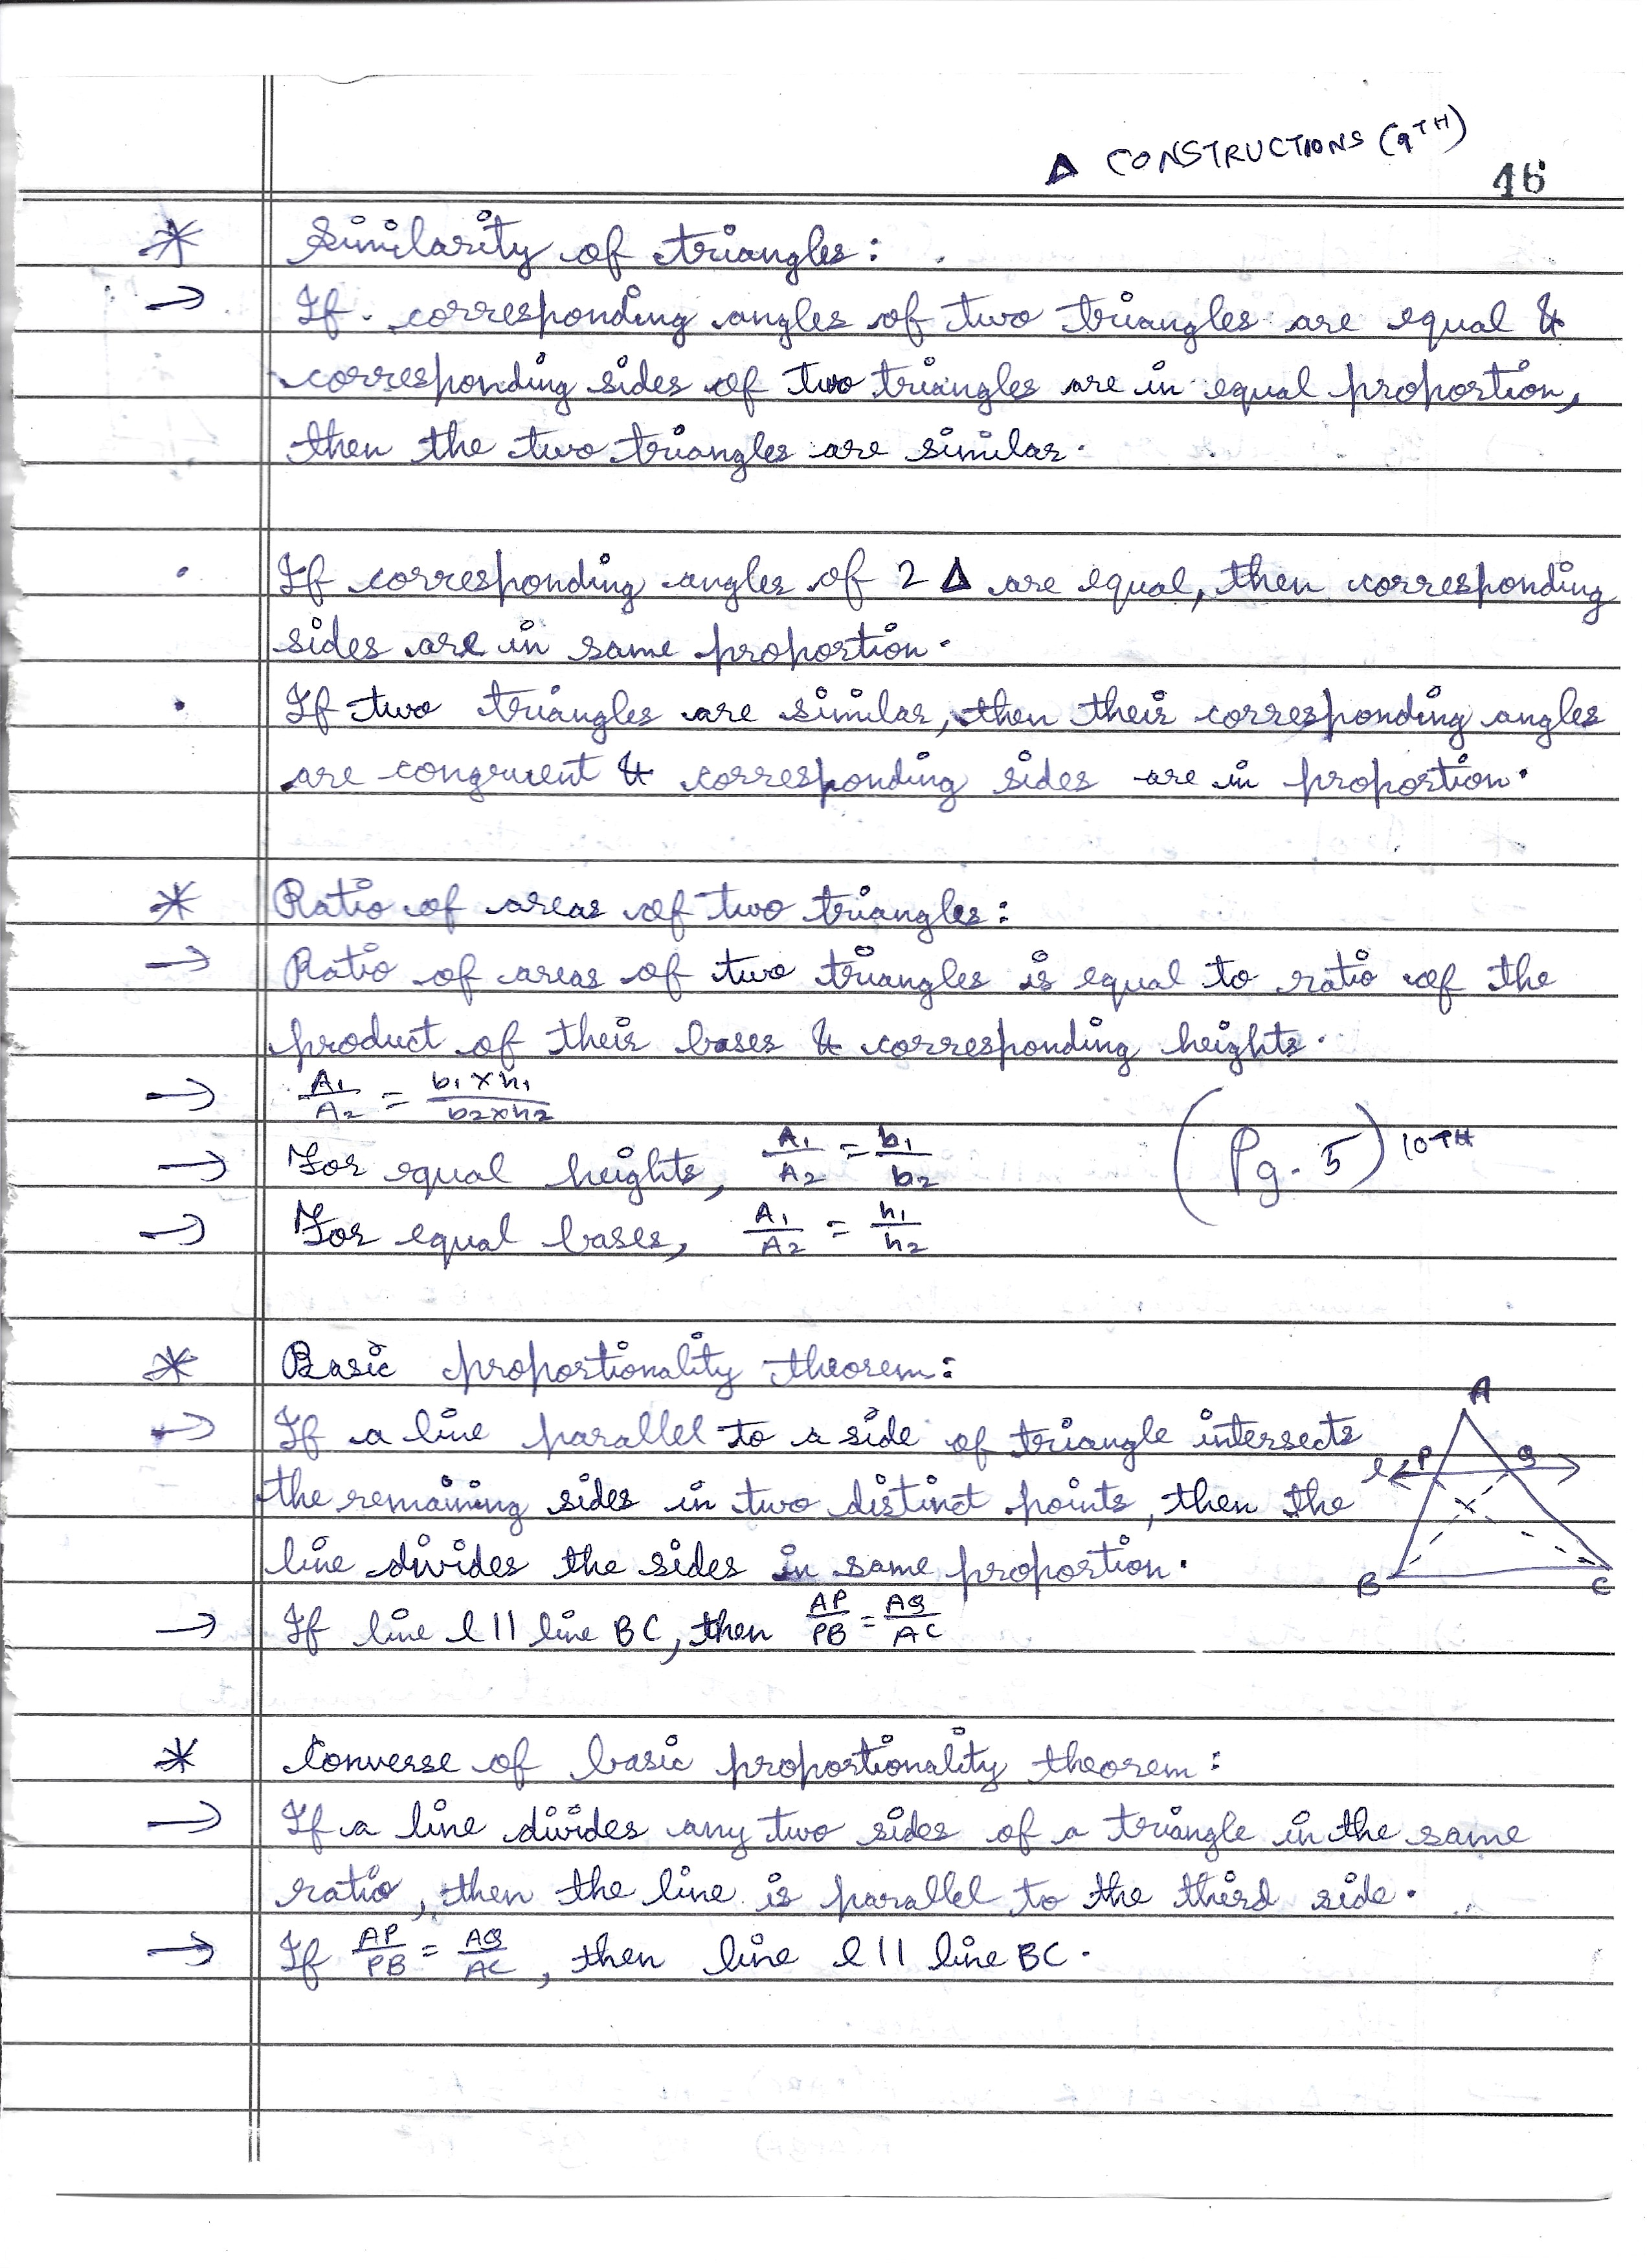 △ CONSTRUCTIONS (9TH)
16
* Similarity of triangles:
→ If corresponding angles of two triangles are equal &
corresponding sides of two triangles are in equal proportion,
then the two triangles are similar.
• If corresponding angles of 2 △ are equal, then corresponding
sides are in same proportion.
• If two triangles are similar, then their corresponding angles
are congruent & corresponding sides are in proportion.
* Ratio of areas of two triangles:
→ Ratio of areas of two triangles is equal to ratio of the
product of their bases & corresponding heights.
→ A1/A2 = b1×h1/b2×h2
→ For equal heights, A1/A2 = b1/b2
(Pg. 5) 10TH
→ For equal bases, A1/A2 = h1/h2
* Basic proportionality theorem:
→ If a line parallel to a side of triangle intersects
the remaining sides in two distinct points, then the
line divides the sides in same proportion.
A
l P Q
B C
→ If line l || line BC, then AP/PB = AQ/AC
* Converse of basic proportionality theorem:
→ If a line divides any two sides of a triangle in the same
ratio, then the line is parallel to the third side.
→ If AP/PB = AQ/AC, then line l || line BC.